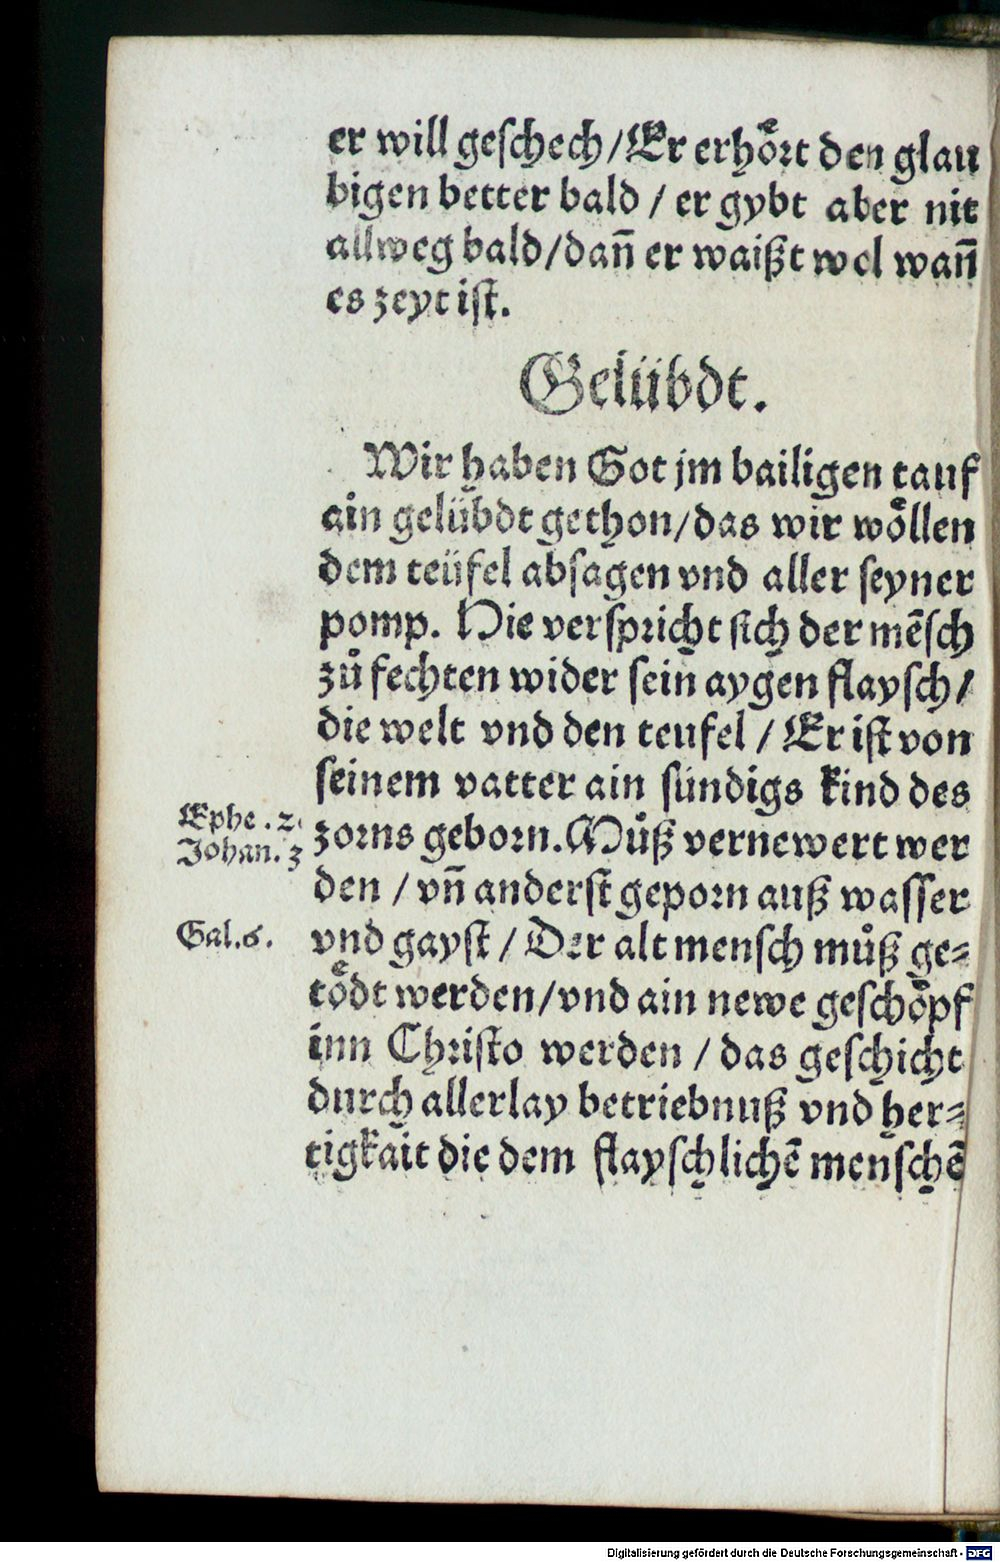 er will geschech/Er erhoͤrt den glau
bigen better bald / er gybt aber nit
allweg bald/dañ er waißt wol wañ
es zeyt ist.
Gelübdt.
Wir haben Got jm hailigen tauf
ain gelübdt gethon/das wir woͤllen
dem teüfel absagen vnd aller seyner
pomp. Hie verspricht sich der mẽsch
zů fechten wider sein aygen flaysch/
die welt vnd den teufel / Er ist von
seinem vatter ain sündigs kind des
Ephe . 2.
zorns geborn. Můß vernewert wer
Johan. 3
den / vñ anderst geporn auß wasser
Gal.6.
vnd gayst / Der alt mensch můß ge⸗
toͤdt werden/vnd ain newe geschoͤpf
inn Christo werden / das geschicht
durch allerlay betriebnuß vnd her⸗
tigkait die dem flayschlichẽ menschẽ
Digitalisierung gefördert durch die Deutsche Forschungsgemeinschaft - DFG